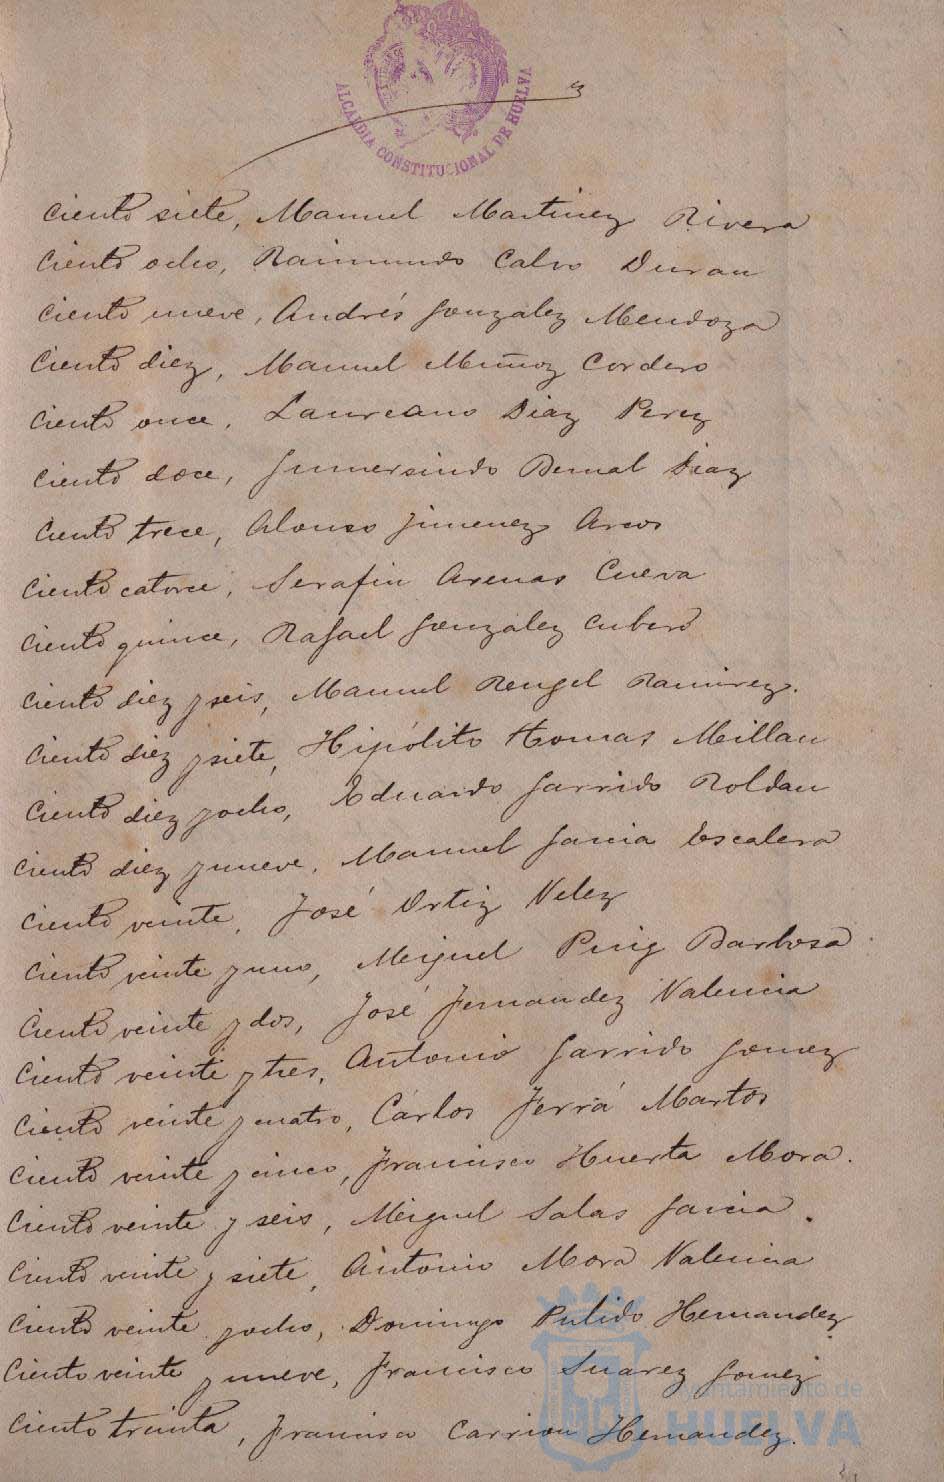 ALCALDIA CONSTITUCIONAL DE HUELVA
Ciento siete, Manuel Martinez Rivera
Ciento ocho, Raimundo Calvo Duran
Ciento nueve, Andrés Gonzalez Mendoza
Ciento diez, Manuel Muñoz Cordero
Ciento once, Laureano Diaz Perez
Ciento doce, Gumersindo Bernal Diaz
Ciento trece, Alonso Jimenez Arcos
Ciento catorce, Serafin Arenas Cueva
Ciento quince, Rafael Gonzalez Cubero
Ciento diez y seis, Manuel Rengel Ramirez.
Ciento diez y siete, Hipólito Tomas Millan
Ciento diez y ocho, Eduardo Garrido Roldan
Ciento diez y nueve, Manuel Garcia Escalera
Ciento veinte, José Ortiz Velez
Ciento veinte y uno, Miguel Puig Barbosa
Ciento veinte y dos, José Fernandez Valencia
Ciento veinte y tres, Antonio Garrido Gomez
Ciento veinte y cuatro, Cárlos Ferrá Martos
Ciento veinte y cinco, Francisco Huerta Mora.
Ciento veinte y seis, Miguel Salas Garcia.
Ciento veinte y siete, Antonio Mora Valencia
Ciento veinte y ocho, Domingo Pulido Hernandez
Ciento veinte y nueve, Francisco Suarez Gomez
Ciento treinta, Francisco Carrion Hernandez.
Ayuntamiento de
HUELVA